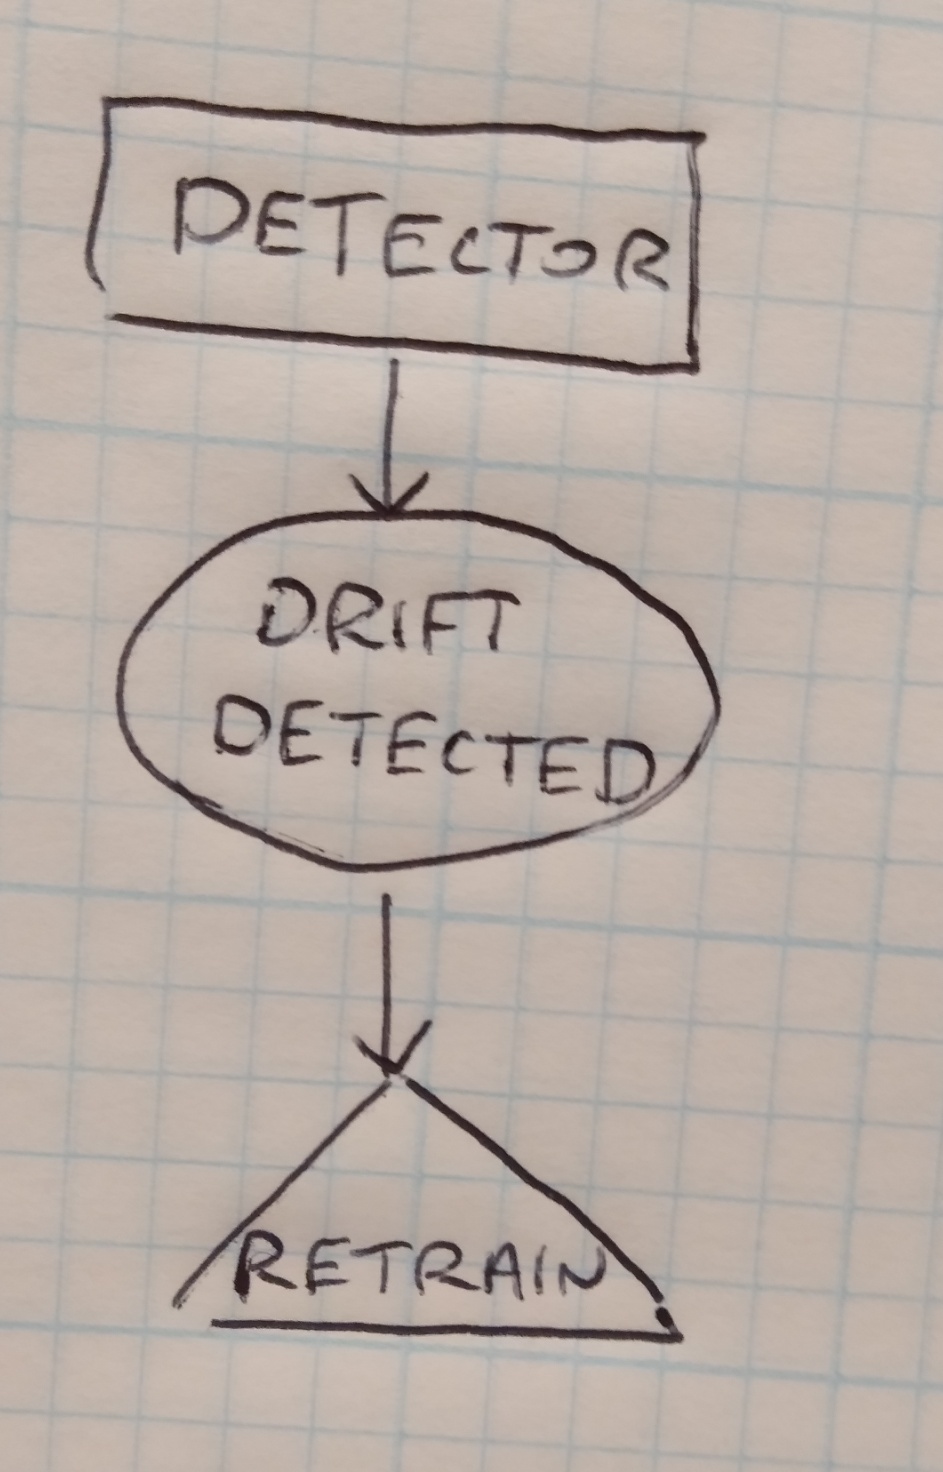 DETECTOR
DRIFT
DETECTED
RETRAIN